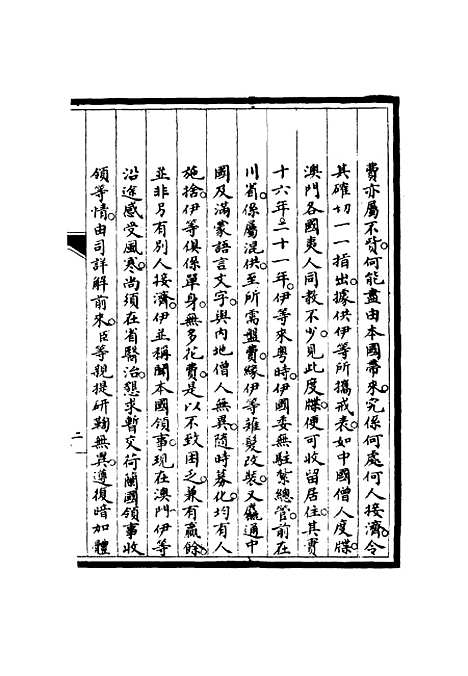 費亦屬不貲。何能盡由本國帶來。究係何處何人接濟。令
其確切一一指出。據供伊等所攜戒表。如中國僧人度牒。
澳門各國夷人同教不少。見此度牒。便可收留居住。其實
十六年。二十一年。伊等來粵時。伊國委無駐紮總管。前在
川省。係屬混供。至所需盤費。緣伊等薙髮改裝。又羸通中
國及滿蒙語言文字。與內地僧人無異。隨時募化。均有人
施捨。伊等俱係單身。無多花費。是以不致困乏。兼有贏餘。
並非另有別人接濟。伊並稱聞本國領事。現在澳門。伊等
沿途感受風寒。尚須在省醫治。懇求暫交荷蘭國領事收
領等情。由司詳解前來。臣等親提研鞫無異。遵復暗加體
二